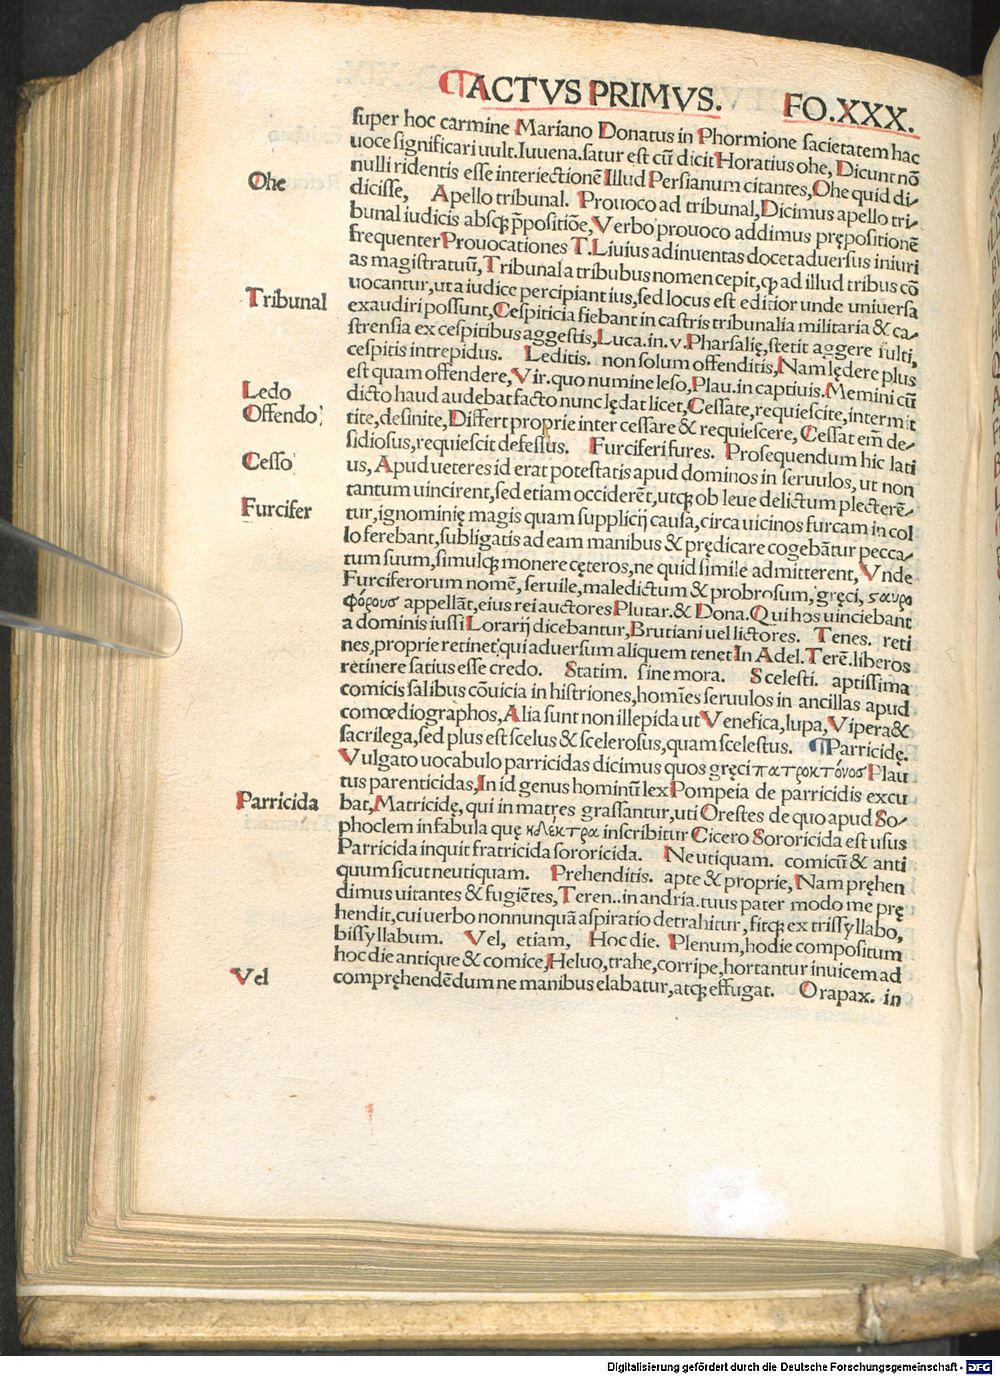 ¶ACTVS PRIMVS. FO.XXX.
super hoc carmine Mariano Donatus in Phormione sacietatem hac
uoce significari uult. Iuuena. satur est cũ dicit Horatius ohe, Dicunt nõ
nulli ridentis esse interiectionẽ Illud Persianum citantes, Ohe quid di/
Ohe
dicisse, Apello tribunal. Prouoco ad tribunal, Dicimus apello tri/
bunal iudicis absqꝫ p̄positiõe, Verbo prouoco addimus prępositionẽ
frequenter Prouocationes T. Liuius adinuentas docet aduersus iniuri
as magistratuũ, Tribunal a tribubus nomen cepit, ꝙ ad illud tribus cõ
uocantur, ut a iudice percipiant ius, sed locus est editior unde uniuersa
Tribunal
exaudiri possunt, Cespiticia fiebant in castris tribunalia militaria & ca/
strensia ex cespitibus aggestis, Luca. in. v. Pharsalię, stetit aggere fulti,
cespitis intrepidus. Leditis. non solum offenditis, Nam lędere plus
est quam offendere, Vir. quo numine leso, Plau. in captiuis. Memini cũ
Ledo
dicto haud audebat facto nunc lędat licet, Cessate, requiescite, intermit
Offendo
tite, desinite, Differt proprie inter cessare & requiescere, Cessat em̃ de/
sidiosus, requiescit defessus. Furciferi fures. Prosequendum hic lati
Cesso
us, Apud ueteres id erat potestatis apud dominos in seruulos, ut non
tantum uincirent, sed etiam occiderẽt, utqꝫ ob leue delictum plecterẽ/
Furcifer
tur, ignominię magis quam supplicij causa, circa uicinos furcam in col
lo ferebant, subligatis ad eam manibus & prędicare cogebãtur pecca/
tum suum, simulqꝫ monere cęteros, ne quid simile admitterent, Vnde
Furciferorum nomẽ, seruile, maledictum & probrosum, gręci, σαυρο
φόρουσ appellãt, eius rei auctores Plutar. & Dona. Qui hos uinciebant
a dominis iussi Lorarij dicebantur, Brutiani uel lictores. Tenes. reti
nes, proprie retinet: qui aduersum aliquem tenet In Adel. Terẽ. liberos
retinere satius esse credo. Statim. sine mora. Scelesti. aptissima
comicis salibus cõuicia in histriones, homĩes seruulos in ancillas apud
comœdiographos, Alia sunt non illepida ut Venefica, lupa, Vipera &
sacrilega, sed plus est scelus & scelerosus, quam scelestus. ¶Parricidę.
Vulgato uocabulo parricidas dicimus quos gręci πατροκτόνοσ Plau
tus parenticidas, In id genus hominũ lex Pompeia de parricidis excu
Parricida
bat, Matricidę, qui in matres grassantur, uti Orestes de quo apud So/
phoclem in fabula quę κλεκτρα inscribitur Cicero Sororicida est usus
Parricida inquit fratricida sororicida. Neutiquam. comicũ & anti
quum sicut neutiquam. Prehenditis. apte & proprie, Nam pręhen
dimus uitantes & fugiẽtes, Teren.. in andria. tuus pater modo me prę
hendit, cui uerbo nonnunquã aspiratio detrahitur, fitqꝫ ex trissyllabo,
bissyllabum. Vel, etiam, Hoc die. Plenum, hodie compositum
hoc die antique & comice, Heluo, trahe, corripe, hortantur inuicem ad
Vel
compręhendẽdum ne manibus elabatur, atqꝫ effugat. Orapax. in
Digitalisierung gefördert durch die Deutsche Forschungsgemeinschaft - DFG